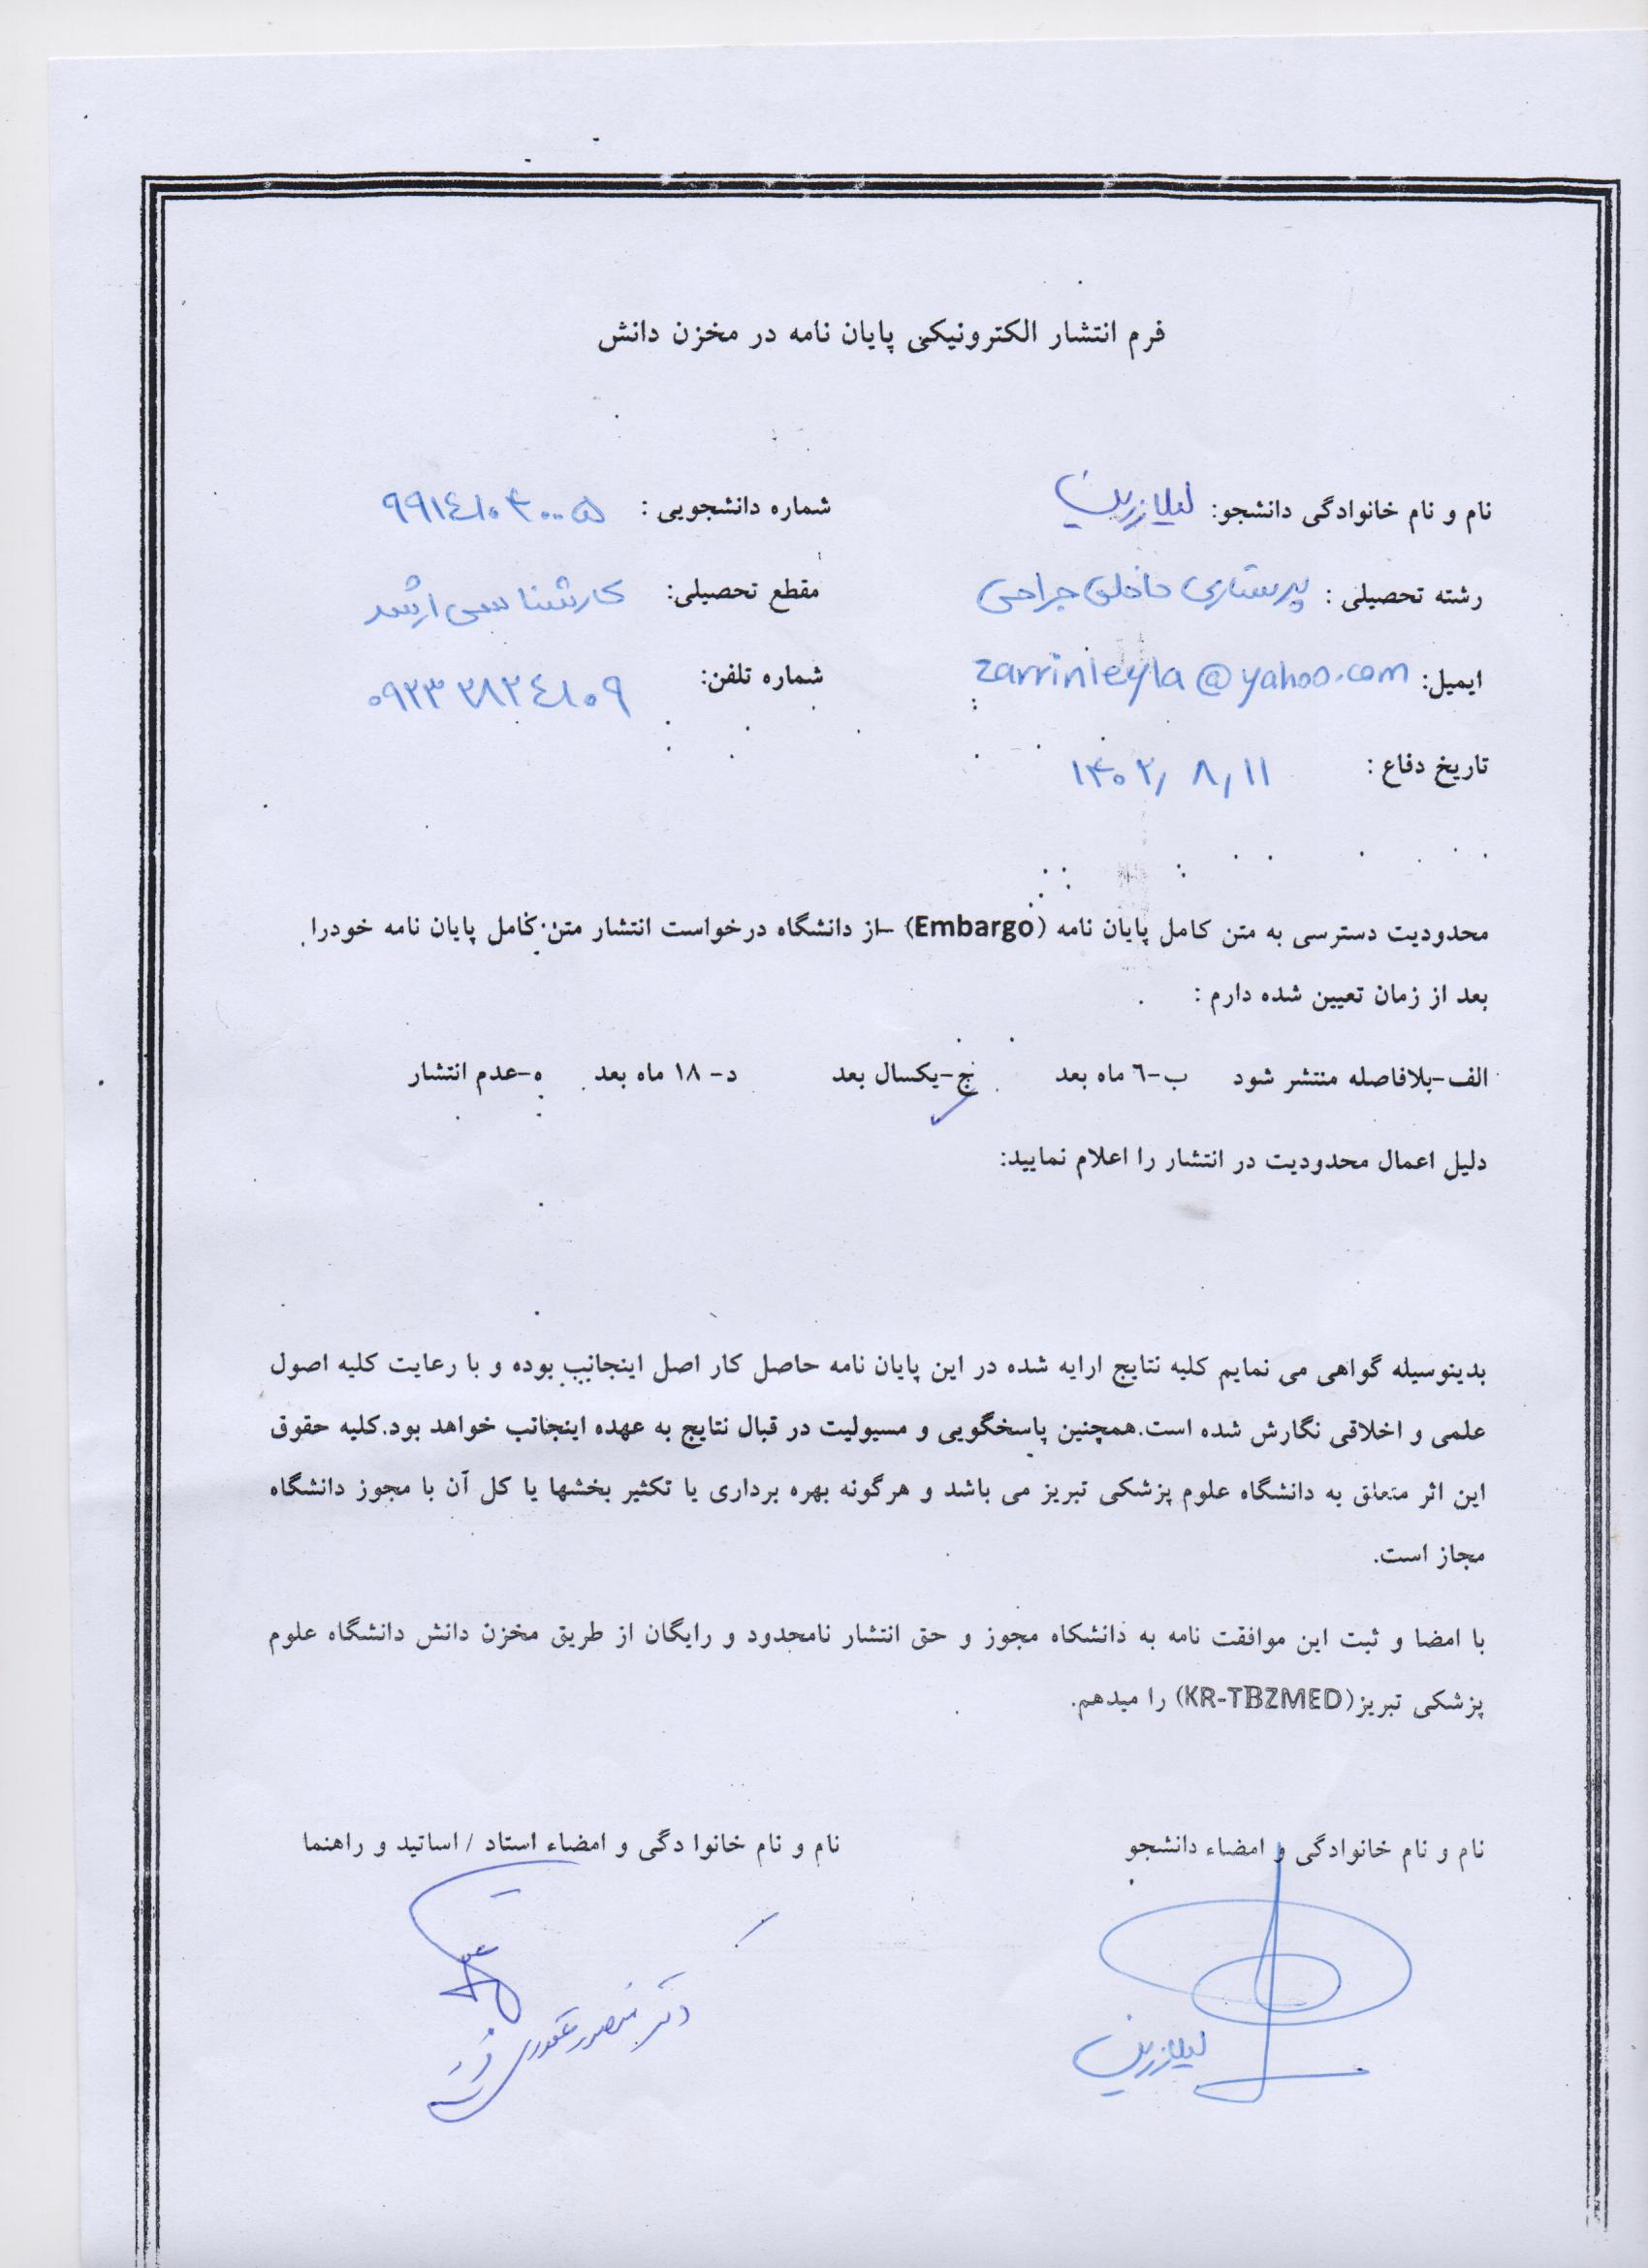 فرم انتشار الکترونیکی پایان نامه در مخزن دانش
نام و نام خانوادگی دانشجو: لیلا زرین شماره دانشجویی : ۹۹۱٤۱۰۴۰۰۵
رشته تحصیلی : پرستاری داخلی جراحی مقطع تحصیلی: کارشناسی ارشد
ایمیل: zarrinleyla@yahoo.com شماره تلفن: ۰۹۳۳۳۸۳٤۱۰۹
تاریخ دفاع : ۱۴۰۲/۸/۱۱
محدودیت دسترسی به متن کامل پایان نامه (Embargo) –از دانشگاه درخواست انتشار متن کامل پایان نامه خودرا
بعد از زمان تعیین شده دارم :
الف-بلافاصله منتشر شود ب-٦ ماه بعد ج-یکسال بعد ✓ د- ۱۸ ماه بعد ه-عدم انتشار
دلیل اعمال محدودیت در انتشار را اعلام نمایید:
بدینوسیله گواهی می نمایم کلیه نتایج ارایه شده در این پایان نامه حاصل کار اصل اینجانب بوده و با رعایت کلیه اصول
علمی و اخلاقی نگارش شده است.همچنین پاسخگویی و مسیولیت در قبال نتایج به عهده اینجانب خواهد بود.کلیه حقوق
این اثر متعلق به دانشگاه علوم پزشکی تبریز می باشد و هرگونه بهره برداری یا تکثیر بخشها یا کل آن با مجوز دانشگاه
مجاز است.
با امضا و ثبت این موافقت نامه به دانشگاه مجوز و حق انتشار نامحدود و رایگان از طریق مخزن دانش دانشگاه علوم
پزشکی تبریز(KR-TBZMED) را میدهم.
نام و نام خانوادگی و امضاء دانشجو نام و نام خانوا دگی و امضاء استاد / اساتید و راهنما
لیلا زرین دکتر منصور غفوری فرد